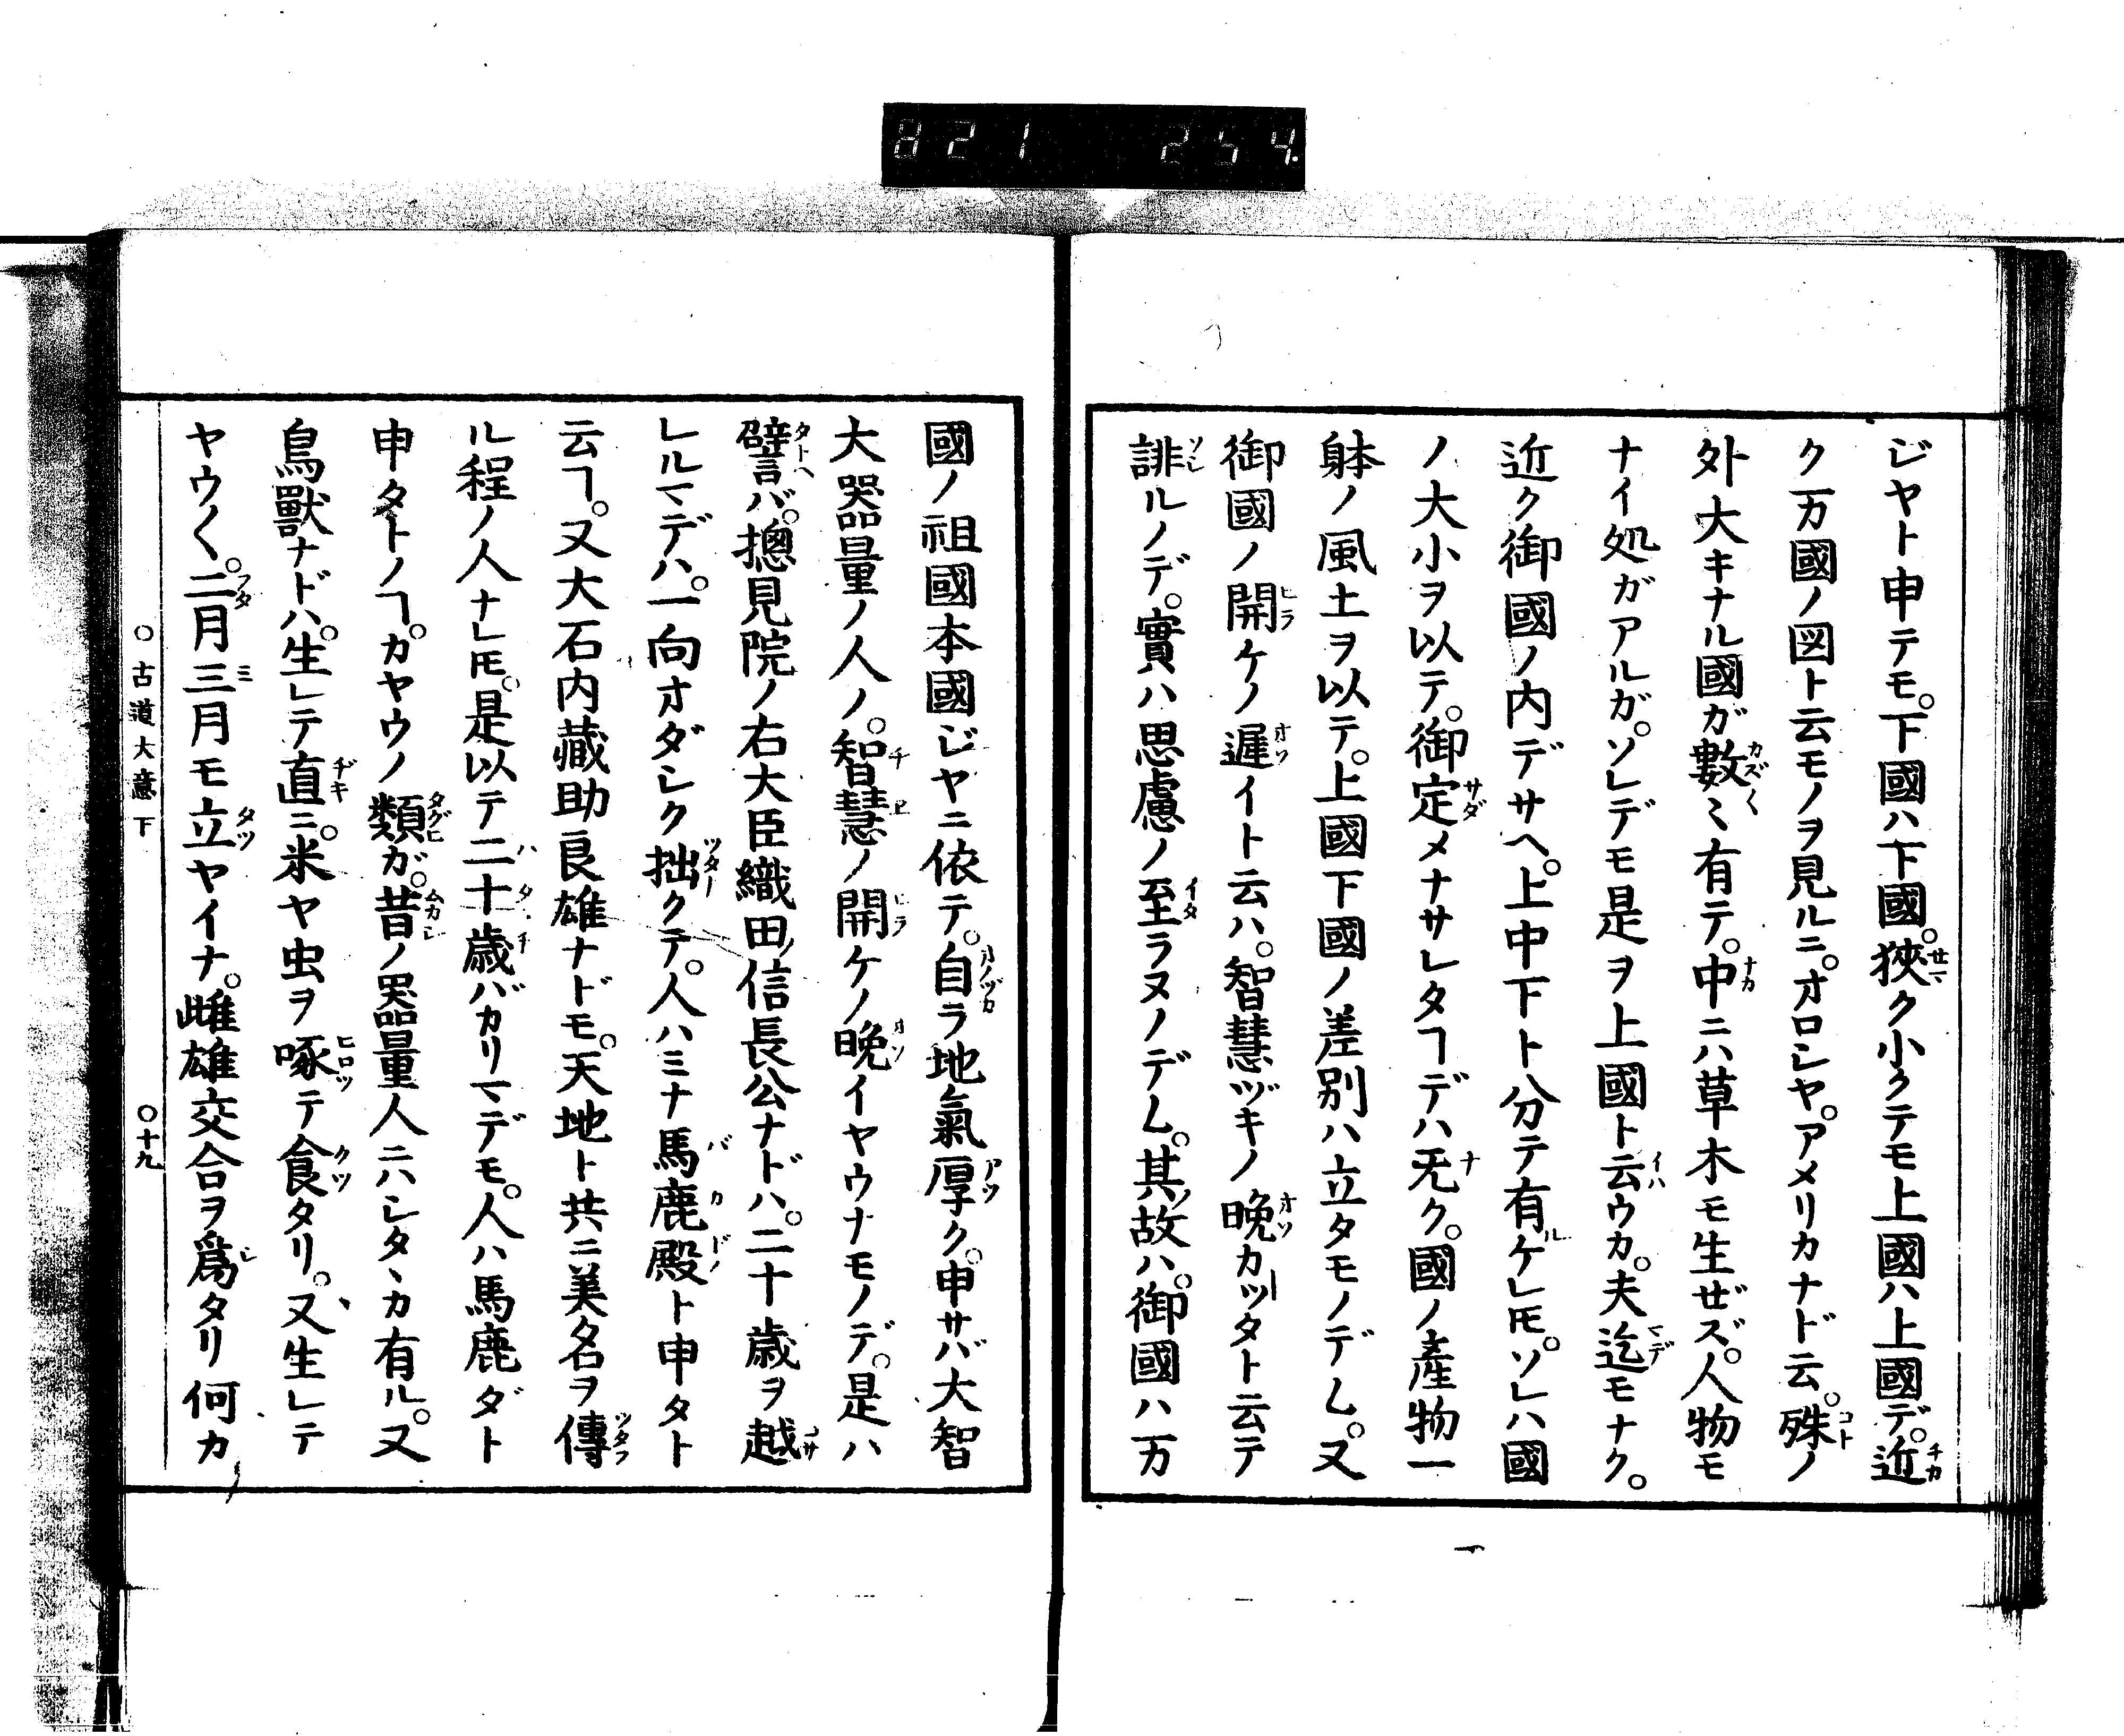 821 254.
ジヤト申テモ。下國ハ下國。狹ク小クテモ上國ハ上國デ。近
ク万國ノ図ト云モノヲ見ルニ。オロシヤ。アメリカナド云。殊ノ
外大キナル國ガ數〻有テ。中ニハ草木モ生ゼズ。人物モ
ナイ処ガアルガ。ソレデモ是ヲ上國ト云ウカ。夫迄モナク。
近ク御國ノ内デサヘ。上中下ト分テ有ケレ𪜈。ソレハ國
ノ大小ヲ以テ。御定メナサレタヿデハ无ク。國ノ產物一
躰ノ風土ヲ以テ。上國下國ノ差別ハ立タモノデム。又
御國ノ開ケノ遲イト云ハ。智慧ヅキノ晩カッタト云テ
誹ルノデ。實ハ思慮ノ至ラヌノデム。其故ハ。御國ハ万
國ノ祖國本國ジヤニ依テ。自ラ地氣厚ク。申サバ大智
大器量ノ人ノ。智慧ノ開ケノ晩イヤウナモノデ。是ハ
譬バ。摠見院ノ右大臣織田ノ信長公ナドハ。二十歳ヲ越
レルマデハ。一向オダシク拙クテ。人ハミナ馬鹿殿ト申タト
云ヿ。又大石内藏助良雄ナドモ。天地ト共ニ美名ヲ傳
ル程ノ人ナレ𪜈。是以テ二十歳バカリマデモ。人ハ馬鹿ダト
申タトノヿ。カヤウノ類ガ。昔ノ器量人ニハシタヽカ有ル。又
鳥獸ナドハ。生レテ直ニ。米ヤ虫ヲ啄テ食タリ。又生レテ
ヤウ〱。二月三月モ立ヤイナ。雌雄交合ヲ爲タリ何カ
○古道大意下 ○十九